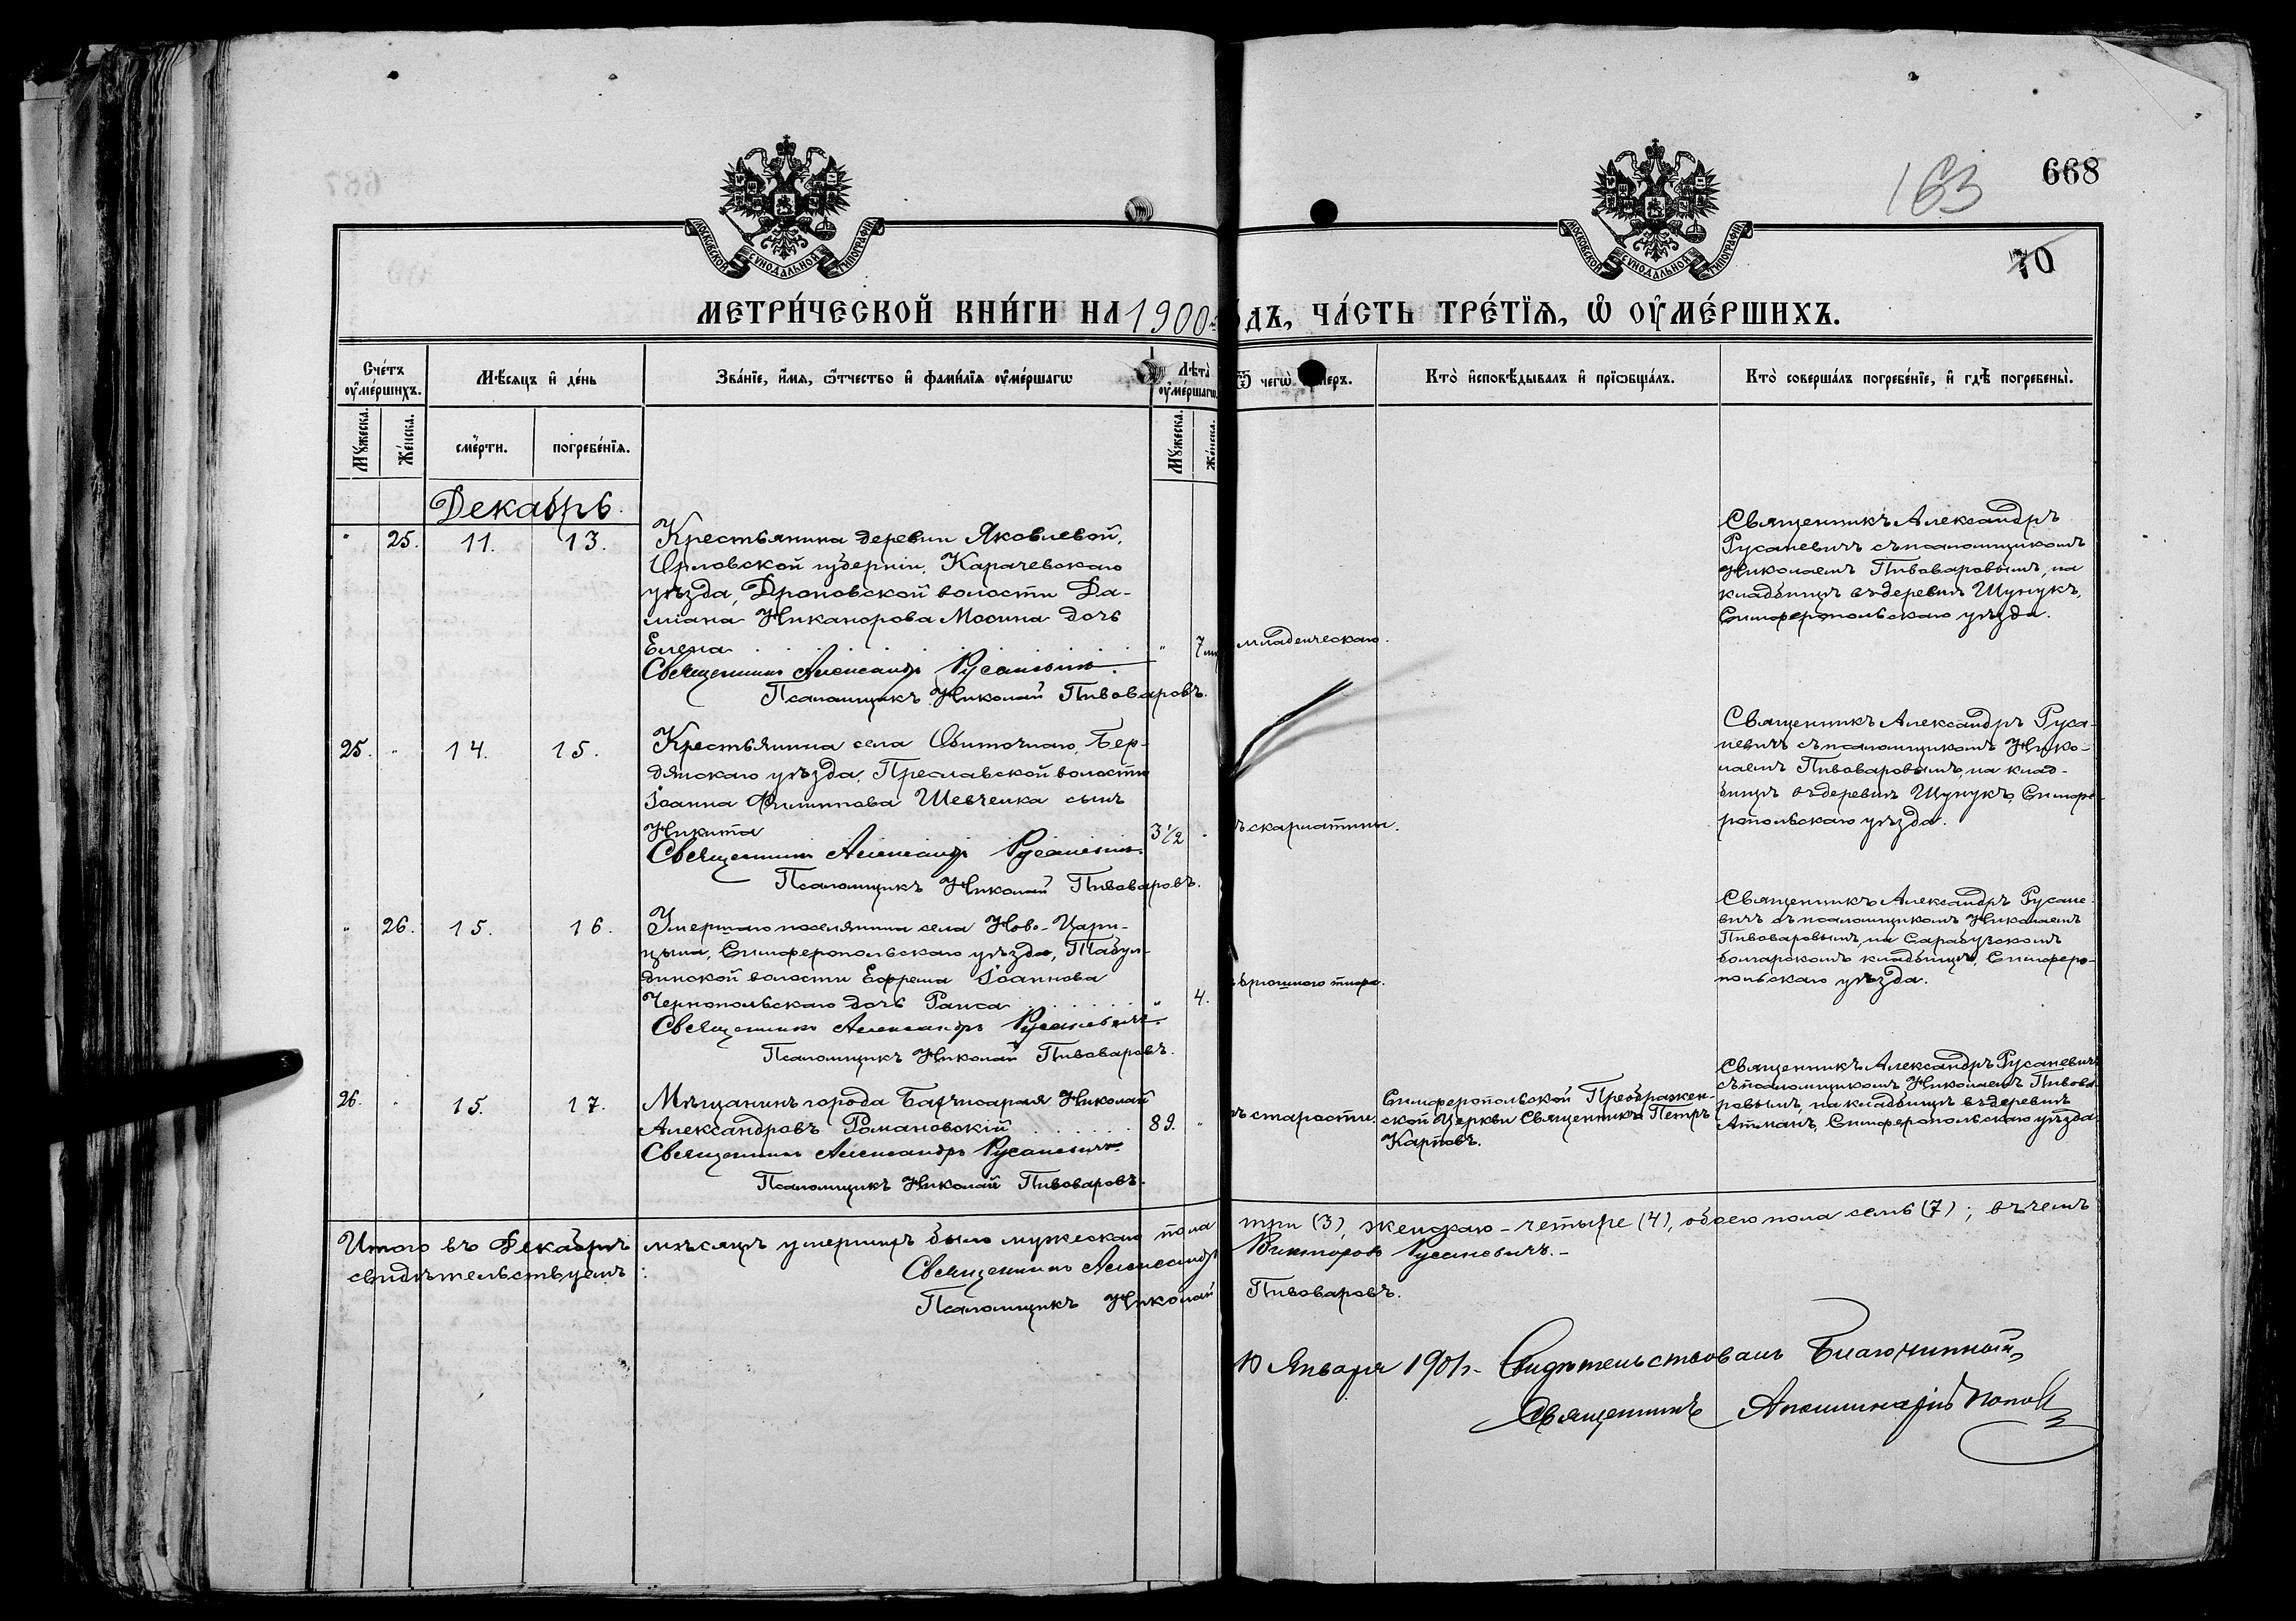 163
668
70
МОСКОВСКОЙ СѴНОДАЛЬНОЙ ТИПОГРАФІИ
МОСКОВСКОЙ СѴНОДАЛЬНОЙ ТИПОГРАФІИ
МЕТРИ́ЧЕСКОЙ КНИ́ГИ НА 1900
ДЪ, ЧА́СТЬ ТРЕ́ТІѦ, Ѡ҆ ОУ҆МЕ́РШИХЪ.
Сче́тъ оу҆ме́ршихъ.
Мѣ́сяцъ и҆ де́нь
Зва́нїе, и҆́мя, ѻ҆́тчество и҆ фами́лїя оу҆ме́ршагѡ
Лѣта̀ оу҆ме́ршагѡ
Ѿ чегѡ̀ меръ.
Кто̀ и҆сповѣ́дывалъ и҆ прїѡбща́лъ.
Кто̀ соверша́лъ погребе́нїе, и҆ гдѣ̀ погребены̀.
Мꙋжеска.
Же́нска.
сме́рти.
погребе́нїѧ.
Мꙋжеска.
Же́нска.
Декабрь.
" 25. 11. 13.
Крестьянина деревни Яковлевой,
Орловской губерніи, Карачевскаго
уѣзда, Дроновской волости Да-
міана Никанорова Мосина дочь
Елена " 7 младенческаго.
Священникъ Александръ Русаневичъ.
Псаломщикъ Николай Пивоваровъ.
Священникъ Александръ
Русаневичъ съ псаломщикомъ
Николаемъ Пивоваровымъ, на
кладбищѣ въ деревнѣ Шунукъ,
Симферопольскаго уѣзда.
25. " 14. 15.
Крестьянина села Обиточнаго, Бер-
дянскаго уѣзда, Преславской волости
Іоанна Филиппова Шевченка сынъ
Никита 3½ " скарлатины.
Священникъ Александръ Русаневичъ.
Псаломщикъ Николай Пивоваровъ.
Священникъ Александръ Руса-
невичъ съ псаломщикомъ Нико-
лаемъ Пивоваровымъ, на клад-
бищѣ въ деревнѣ Шунукъ, Симфе-
ропольскаго уѣзда.
" 26. 15. 16.
Умершаго поселянина села Ново-Цари-
цына, Симферопольскаго уѣзда, Табул-
динской волости Ефрема Іоаннова
Чернопольскаго дочь Раиса " 4. брюшного тифа.
Священникъ Александръ Русаневичъ.
Псаломщикъ Николай Пивоваровъ.
Священникъ Александръ Русане-
вичъ съ псаломщикомъ Николаемъ
Пивоваровымъ, на Сарабузскомъ
болгарскомъ кладбищѣ, Симферо-
польскаго уѣзда.
26. " 15. 17.
Мѣщанинъ города Бахчисарая Николай
Александровъ Романовскій 89. " старости.
Священникъ Александръ Русаневичъ.
Псаломщикъ Николай Пивоваровъ.
Симферопольской Преображен-
ской церкви Священникъ Петръ
Карповъ.
Священникъ Александръ Русаневичъ
съ псаломщикомъ Николаемъ Пивова-
ровымъ, на кладбищѣ въ деревнѣ
Атманъ, Симферопольскаго уѣзда.
Итого въ Декабрѣ мѣсяцѣ умершихъ было мужескаго пола три (3), женскаго - четыре (4), обоего пола семь (7); въ чемъ
свидѣтельствуемъ: Священникъ Александръ Викторовъ Русаневичъ.-
Псаломщикъ Николай Пивоваровъ.
10 Января 1901 г. Свидѣтельствовалъ Благочинный,
Священникъ Аполлинарій Поповъ